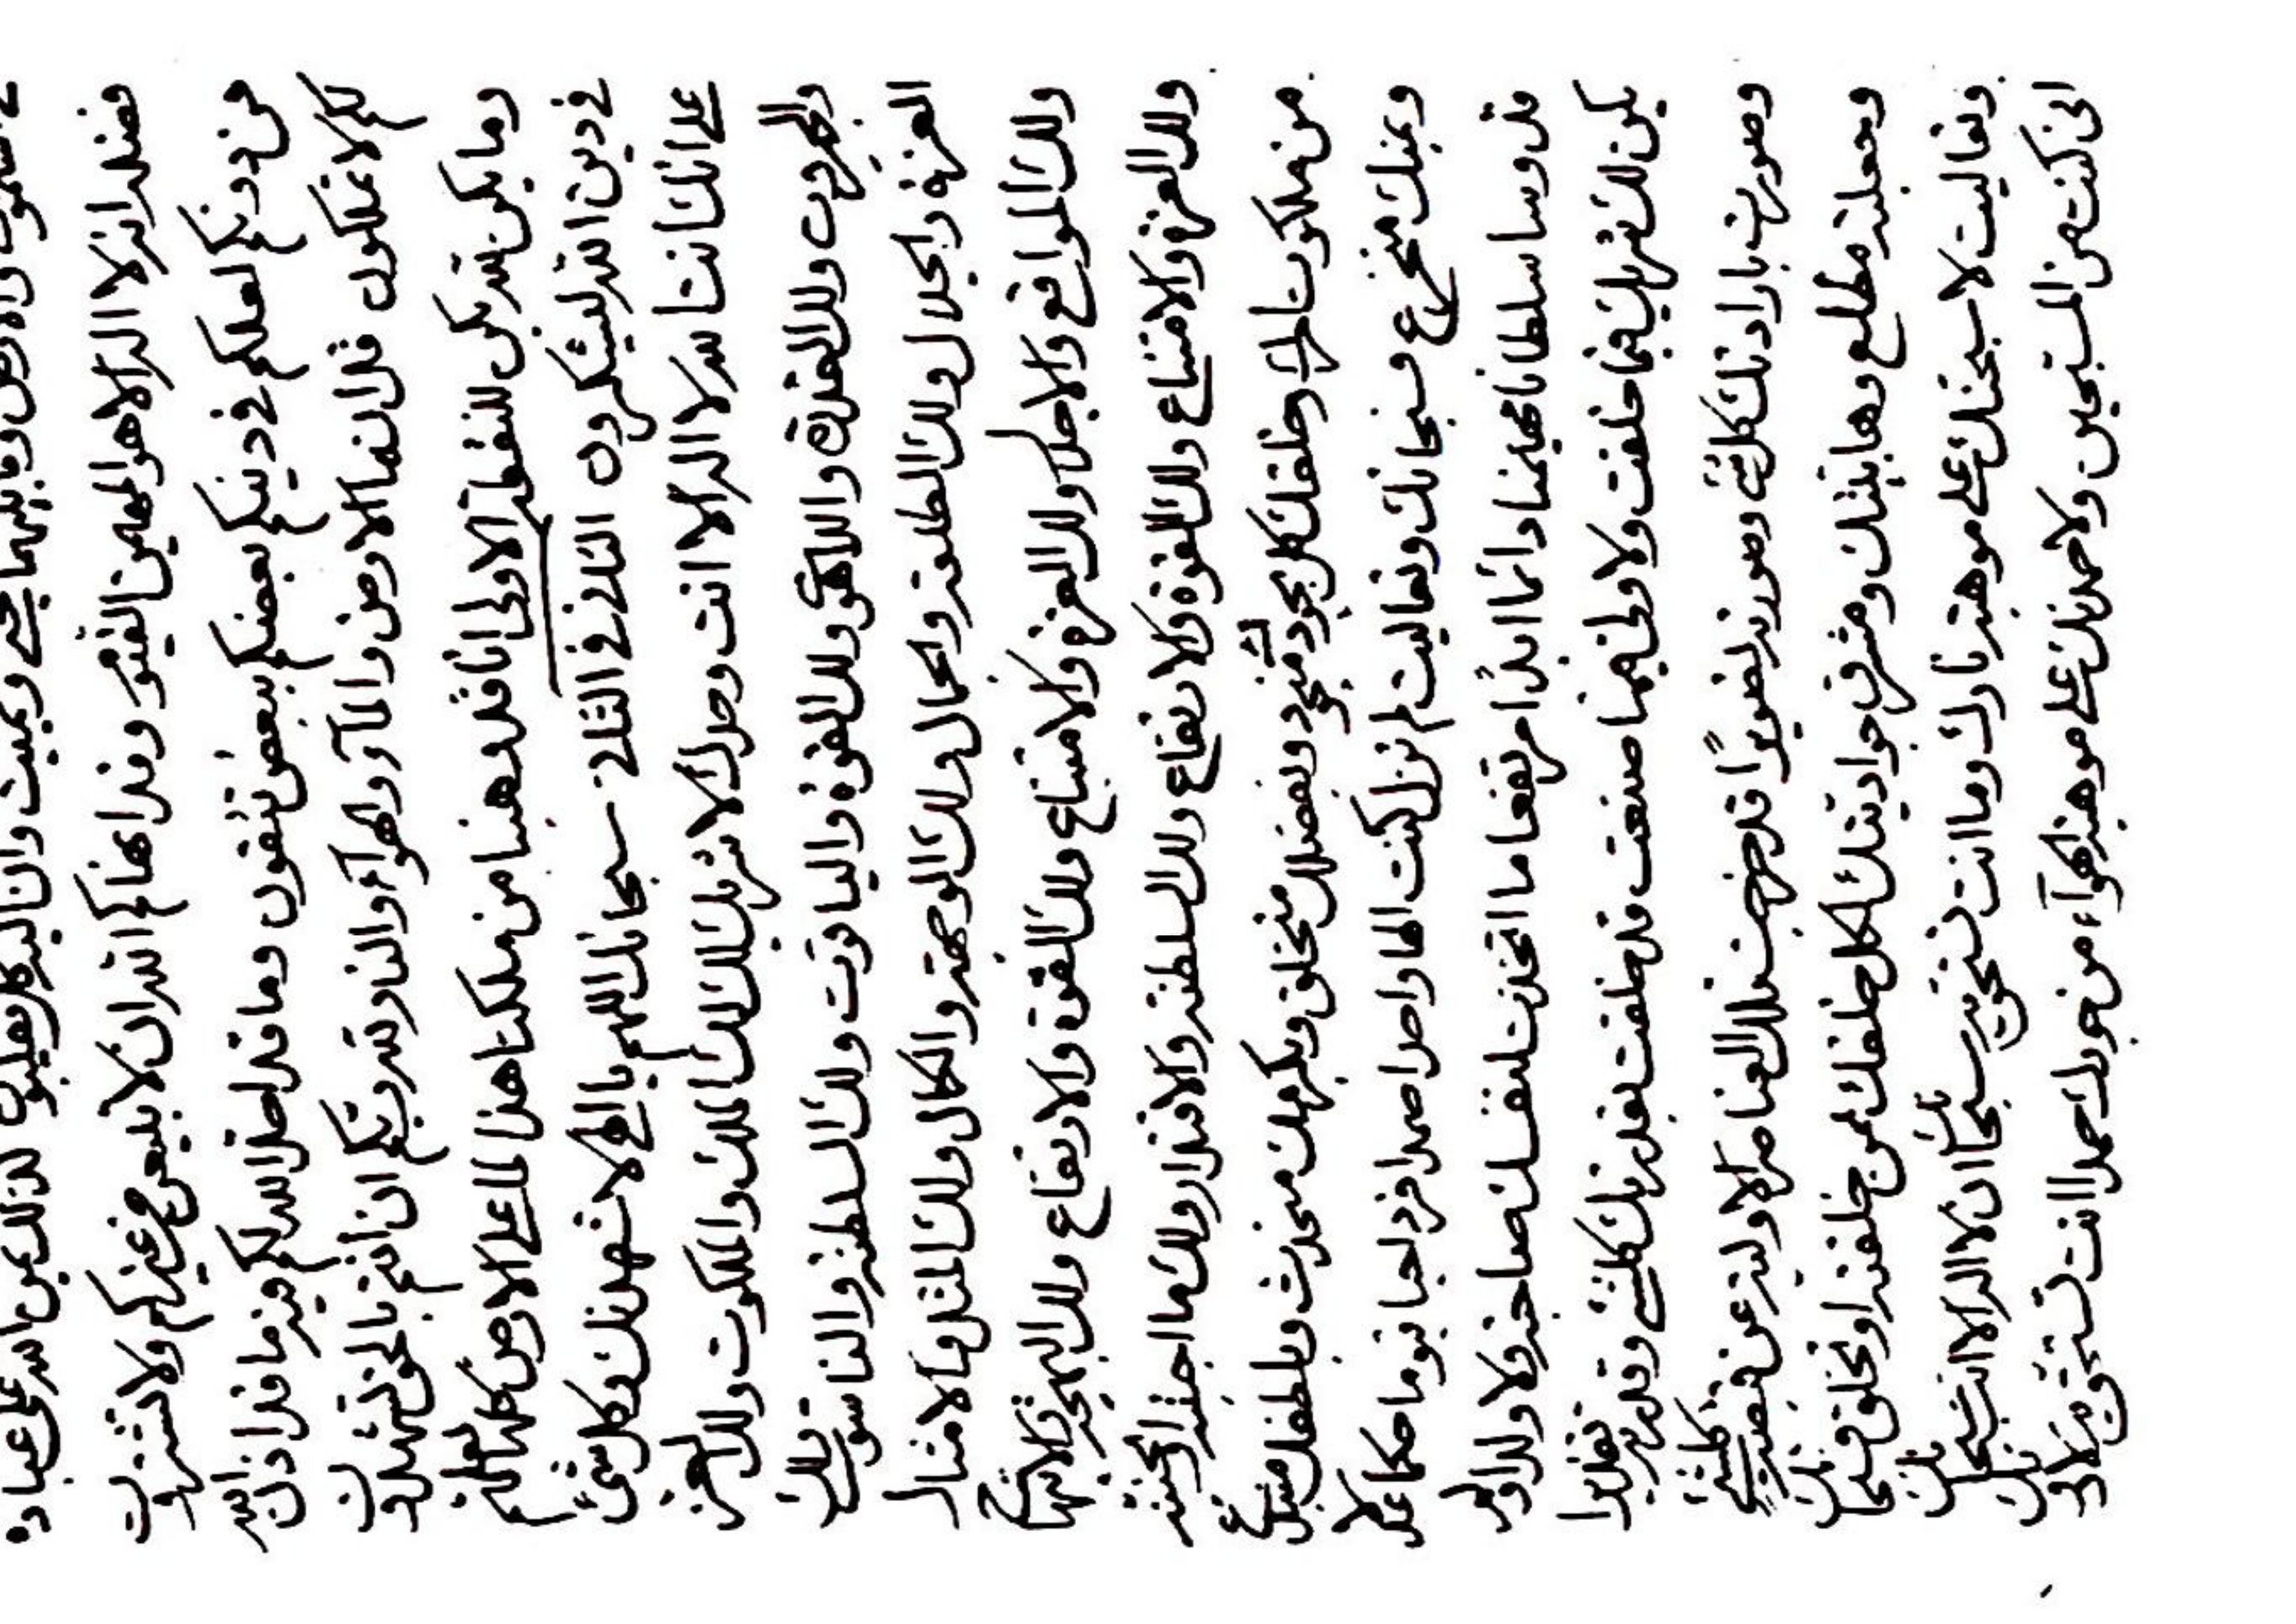 السموات والارض وما بينهما يحيي ويميت وان اليه كل يقلبون لذلك عن الله على عباده
فضله انه لا اله الا هو المهيمن القيوم وقد انهاكم الله ان لا يبيعن من غيركم ولا تشترون
من دونكم لعلكم في دينكم بعضكم ببعض تتقون وما قد احل الله لكم فيه ما قد اذن الله
لكم لا تملكون قل انما الارض والمآء والهوآء والنار لله ربكم ان انتم بالحق لتشهدون
وما يكن لله يكن للنقطة الاولى انا قد وهبنا من ملكنا هذا لما على الارض كلها لعلهم
في دين الله ليشكرون الثاني في الثالث سبحانك اللهم يا الهي لاشهدنك وكل شئ
على انك انت الله لا اله الا انت وحدك لا شريك لك لك الملك والملكوت ولك العز
والجبروت ولك القدرة واللاهوت ولك القوة والياقوت ولك السلطنة والناسوت ولك
العزة والجلال ولك الطلعة والجمال ولك الوجهة والكمال ولك المثل والامثال
ولك المواقع والاجلال ولك العزة والامتناع ولك القوة والارتفاع ولك البهجة والابتهاج
ولك العزة والامتناع ولك القوة والارتفاع ولك السلطنة والاقتدار ولك ما احببته او تحبنه
من ملكوت امرك وخلقك كل بجودك وبفضلك منخلق وبكرمك منحدث وبلطفك
وبمنك مخترع فسبحانك وتعاليت لم تزل كنت الها واحدا صمدا فردا حيا قيوما حكما عدلا
قدوسا سلطانا مهيمنا دائما ابدا مرتفعا ما اتخذت لنفسك صاحبة ولا ولدا ولم
يكن لك شريك فيما خلقت ولا ولي فيما صنعت قد خلقت بقدرتك كلشئ وقدرته تقديرا
وصورت بارادتك كلشئ وصورته تصويرا قد خصصت تلك العناصر الاولية عن كلشئ
وجعلته مطلع وهابيتك ومشرق جواديتك لكل خلقك ممن خلقته او تخلق فسبحانك
وتعاليت لاسبحنك على موهبة نارك وما انت تستحق به سبحانك ان لا اله الا انت سبحانك
اني كنت من المسبحين ولاحمدنك على موهبة الهوآء من جودك حمدا انت تستحق به لا دونك